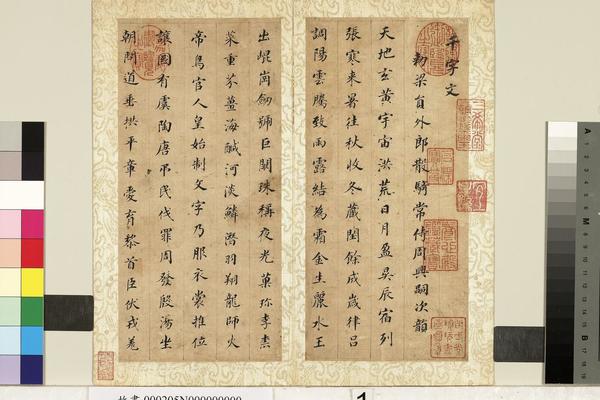 千字文
勑梁員外郎散騎常侍周興嗣次韻
天地玄黃宇宙洪荒日月盈昃辰宿列
張寒來暑往秋收冬藏閏餘成歲律呂
調陽雲騰致雨露結為霜金生麗水玉
出崐崗劒號巨闕珠稱夜光菓珎李柰
菜重芥薑海鹹河淡鱗潛羽翔龍師火
帝鳥官人皇始制文字乃服衣裳推位
讓國有虞陶唐弔民伐罪周發殷湯坐
朝問道垂拱平章愛育黎首臣伏戎羌
三希堂精鑑璽
宜子孫
故書 000205N000000000
1
A
M
B